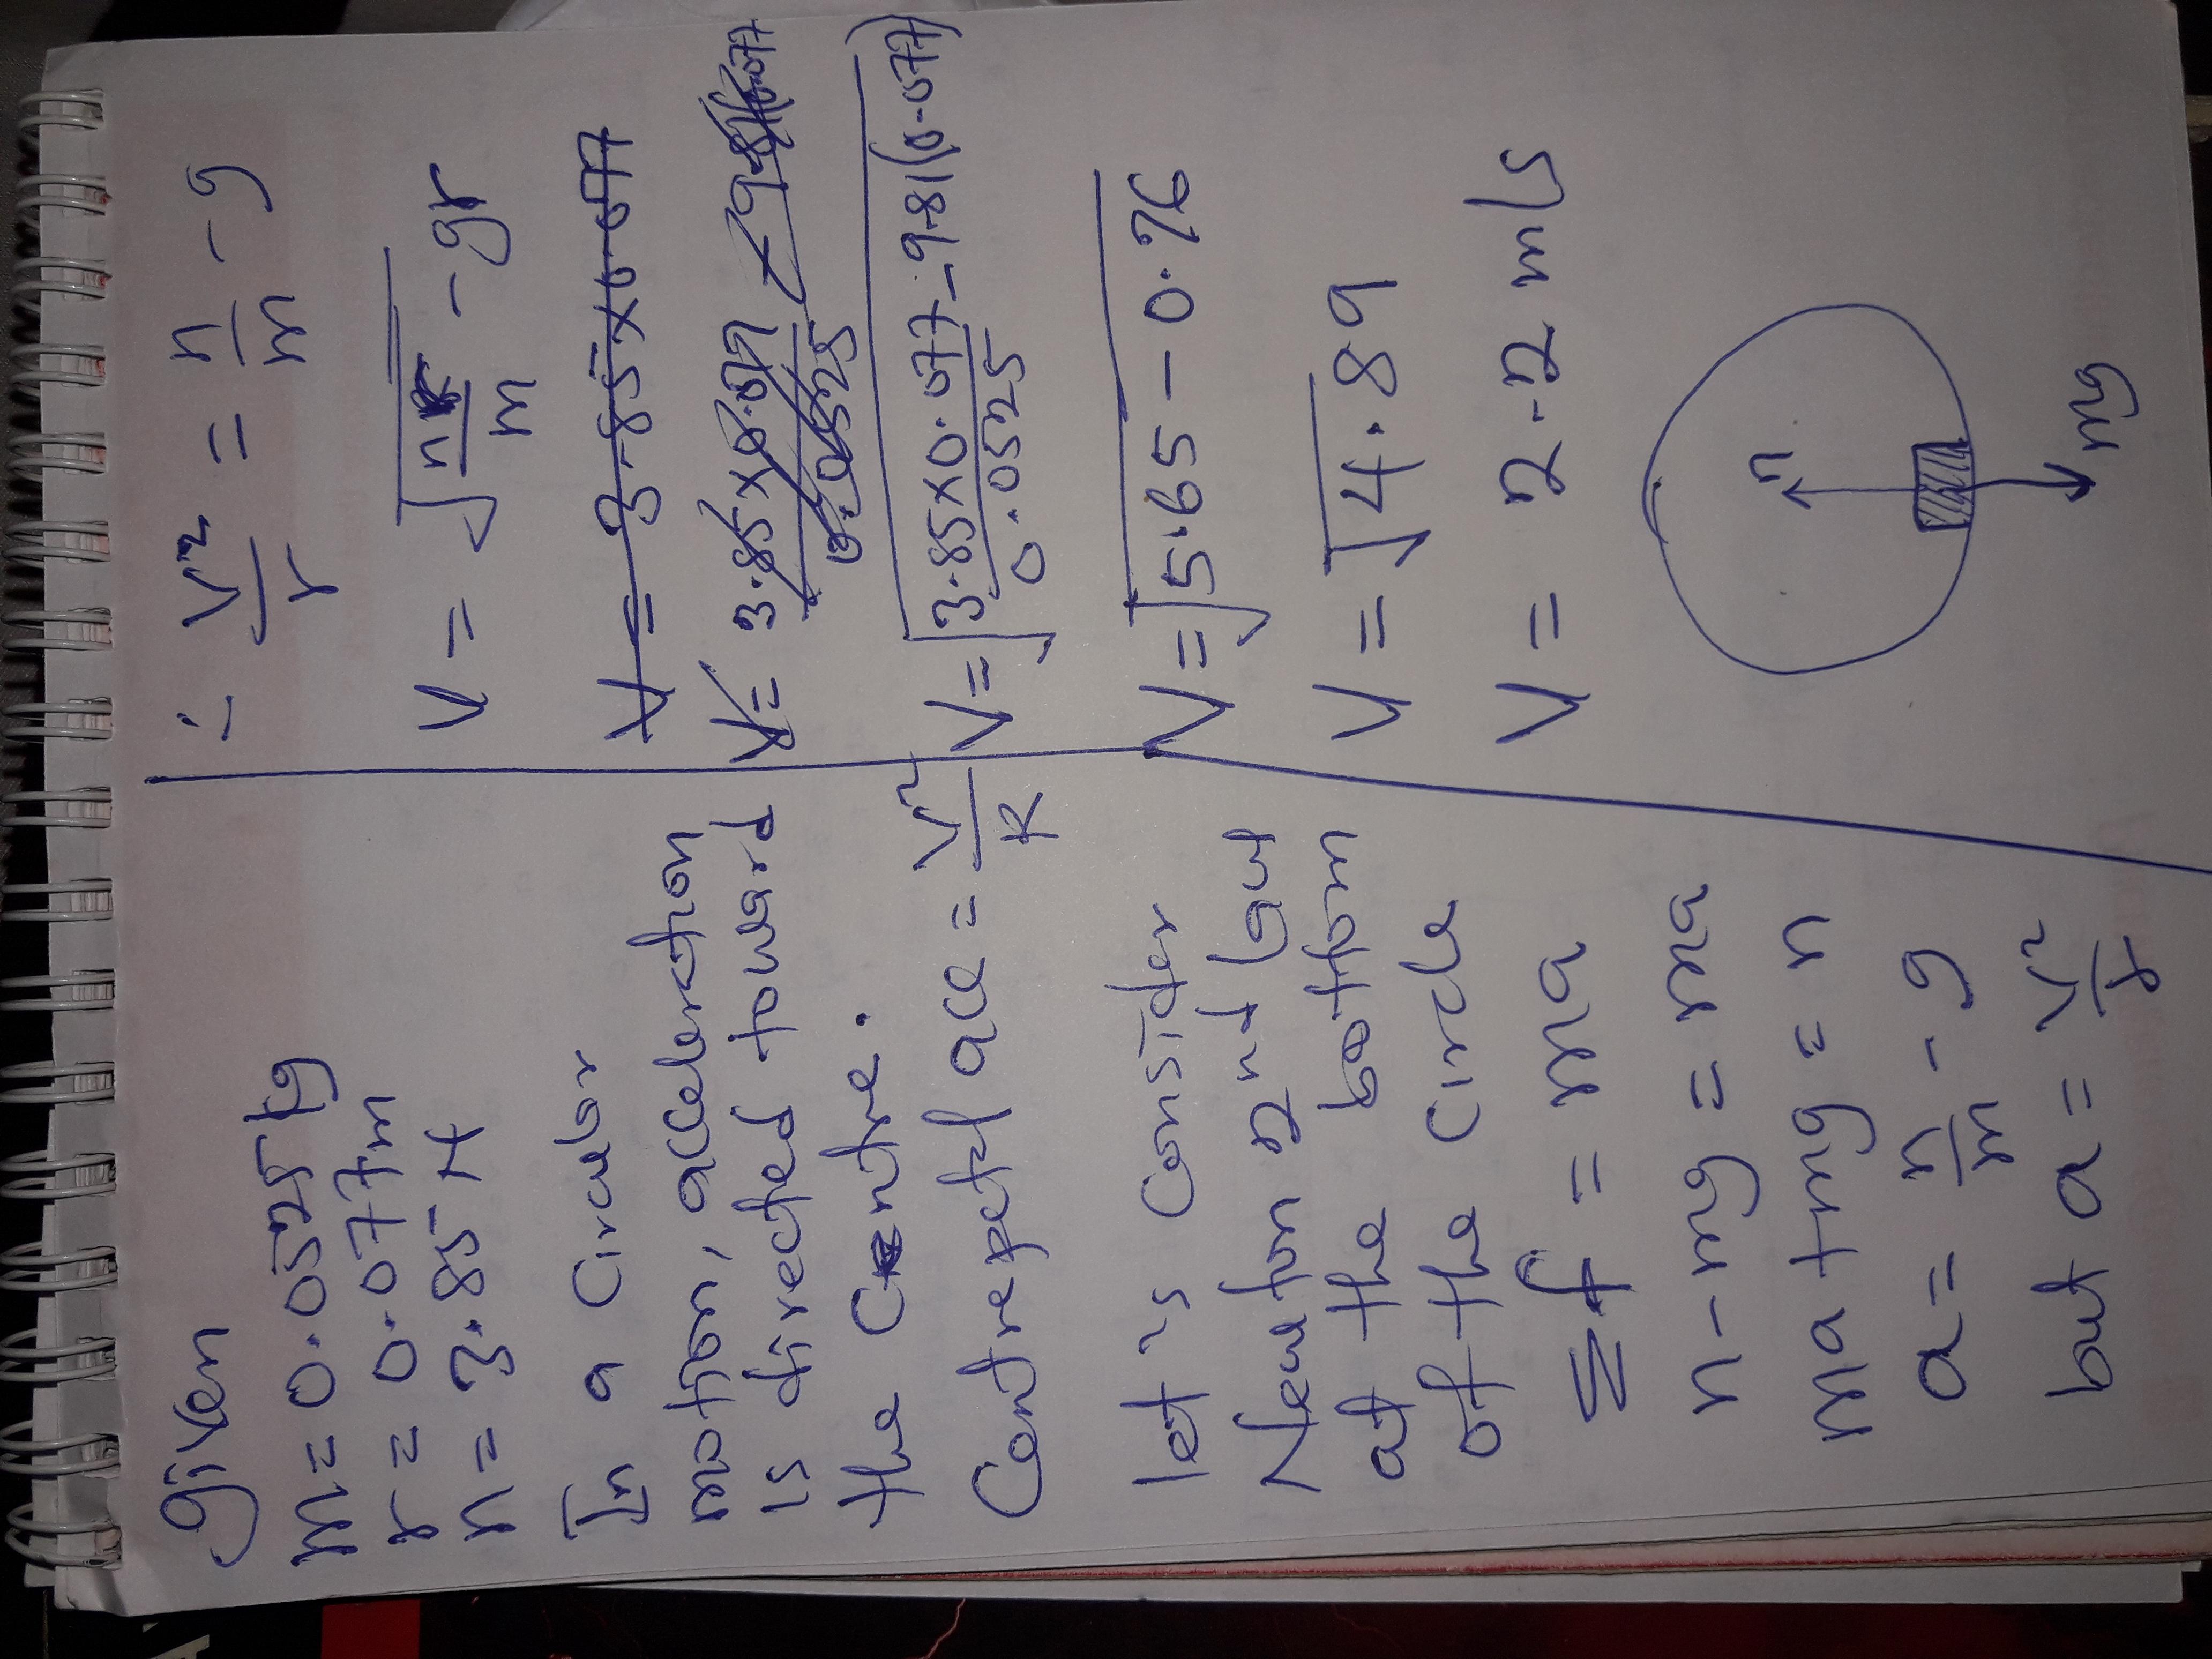 given
m = 0.0525 kg
r = 0.077m
n = 3.85 N
In a Circular
motion, acceleration
is directed toward
the Centre.
Centrepetel acc = V²/R
let us Consider
Newton 2nd law
at the bottom
of the Circle
Σf = ma
n - mg = ma
ma + mg = n
a = n/m - g
but a = V²/r
∴ V²/r = n/m - g
V = √nr/m - gr
V = 3.85 x 0.077
V = 3.85 x 0.077/0.0525
V = √3.85 x 0.077/0.0525 - 9.81(0.077)
V = √5.65 - 0.76
V = √4.89
V = 2.2 m/s
n
mg